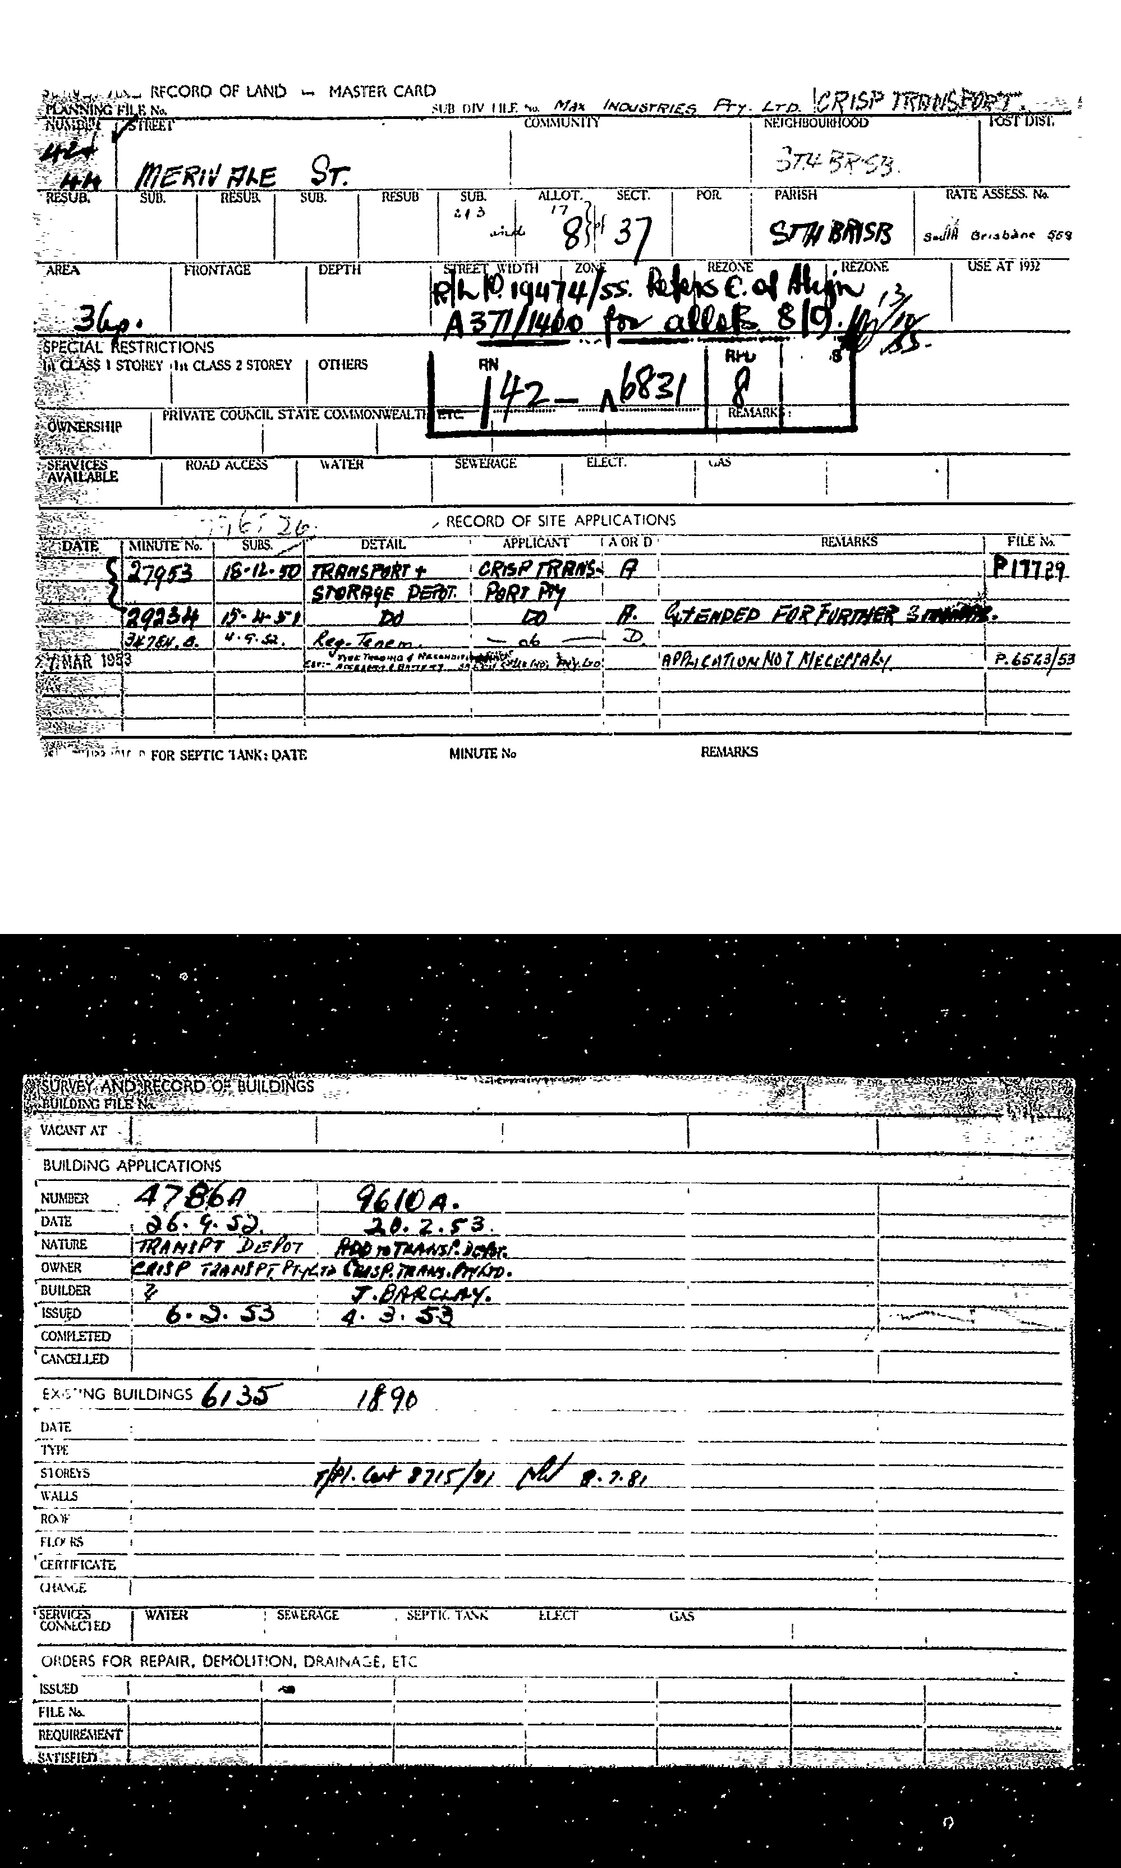 RECORD OF LAND — MASTER CARD
PLANNING FILE No. SUB DIV FILE No. MAX INDUSTRIES PTY. LTD. CRISP TRANSPORT.
NUMBER STREET COMMUNITY NEIGHBOURHOOD POST DIST.
424
44 MERIVALE ST. STH BRISB.
RESUB. SUB. RESUB. SUB. RESUB SUB. ALLOT. SECT. POR. PARISH RATE ASSESS. No.
2/3 and 17 8 37 STH BRISB South Brisbane 558
AREA FRONTAGE DEPTH STREET WIDTH ZONE REZONE REZONE USE AT 1932
R/L 10. 19474/55. Refers C. of Align
36p. A371/1400 for allots 8/9. 13/10/55.
SPECIAL RESTRICTIONS
1st CLASS 1 STOREY 1st CLASS 2 STOREY OTHERS RN
142 — A6831 8
OWNERSHIP PRIVATE COUNCIL STATE COMMONWEALTH ETC. REMARKS:
SERVICES AVAILABLE ROAD ACCESS WATER SEWERAGE ELECT. GAS
RECORD OF SITE APPLICATIONS
DATE MINUTE No. SUBS. DETAIL APPLICANT A OR D REMARKS FILE No.
27953 18-12-50 TRANSPORT + CRISP TRANS- A P17729
STORAGE DEPOT. PORT PTY
29234 15-4-51 DO DO A. EXTENDED FOR FURTHER
34784.B. 4.9.52. Reg. Tenem. — do — D.
7 MAR 1953 APPLICATION NOT NECESSARY P.6523/53
FOR SEPTIC TANK: DATE MINUTE No REMARKS
SURVEY AND RECORD OF BUILDINGS
BUILDING FILE No.
VACANT AT
BUILDING APPLICATIONS
NUMBER 4786A 9610A.
DATE 26.9.52. 20.2.53.
NATURE TRANSPT DEPOT ADD TO TRANSP. DEPOT.
OWNER CRISP TRANSPT PTY LTD CRISP. TRANS. PTY LTD.
BUILDER J. BARCLAY.
ISSUED 6.2.53 4.3.53
COMPLETED
CANCELLED
EXISTING BUILDINGS 6135 1890
DATE
TYPE
STOREYS T/Pl. Cert 8715/81 8.7.81
WALLS
ROOF
FLOORS
CERTIFICATE
CHANGE
SERVICES CONNECTED WATER SEWERAGE SEPTIC TANK ELECT GAS
ORDERS FOR REPAIR, DEMOLITION, DRAINAGE, ETC
ISSUED
FILE No.
REQUIREMENT
SATISFIED